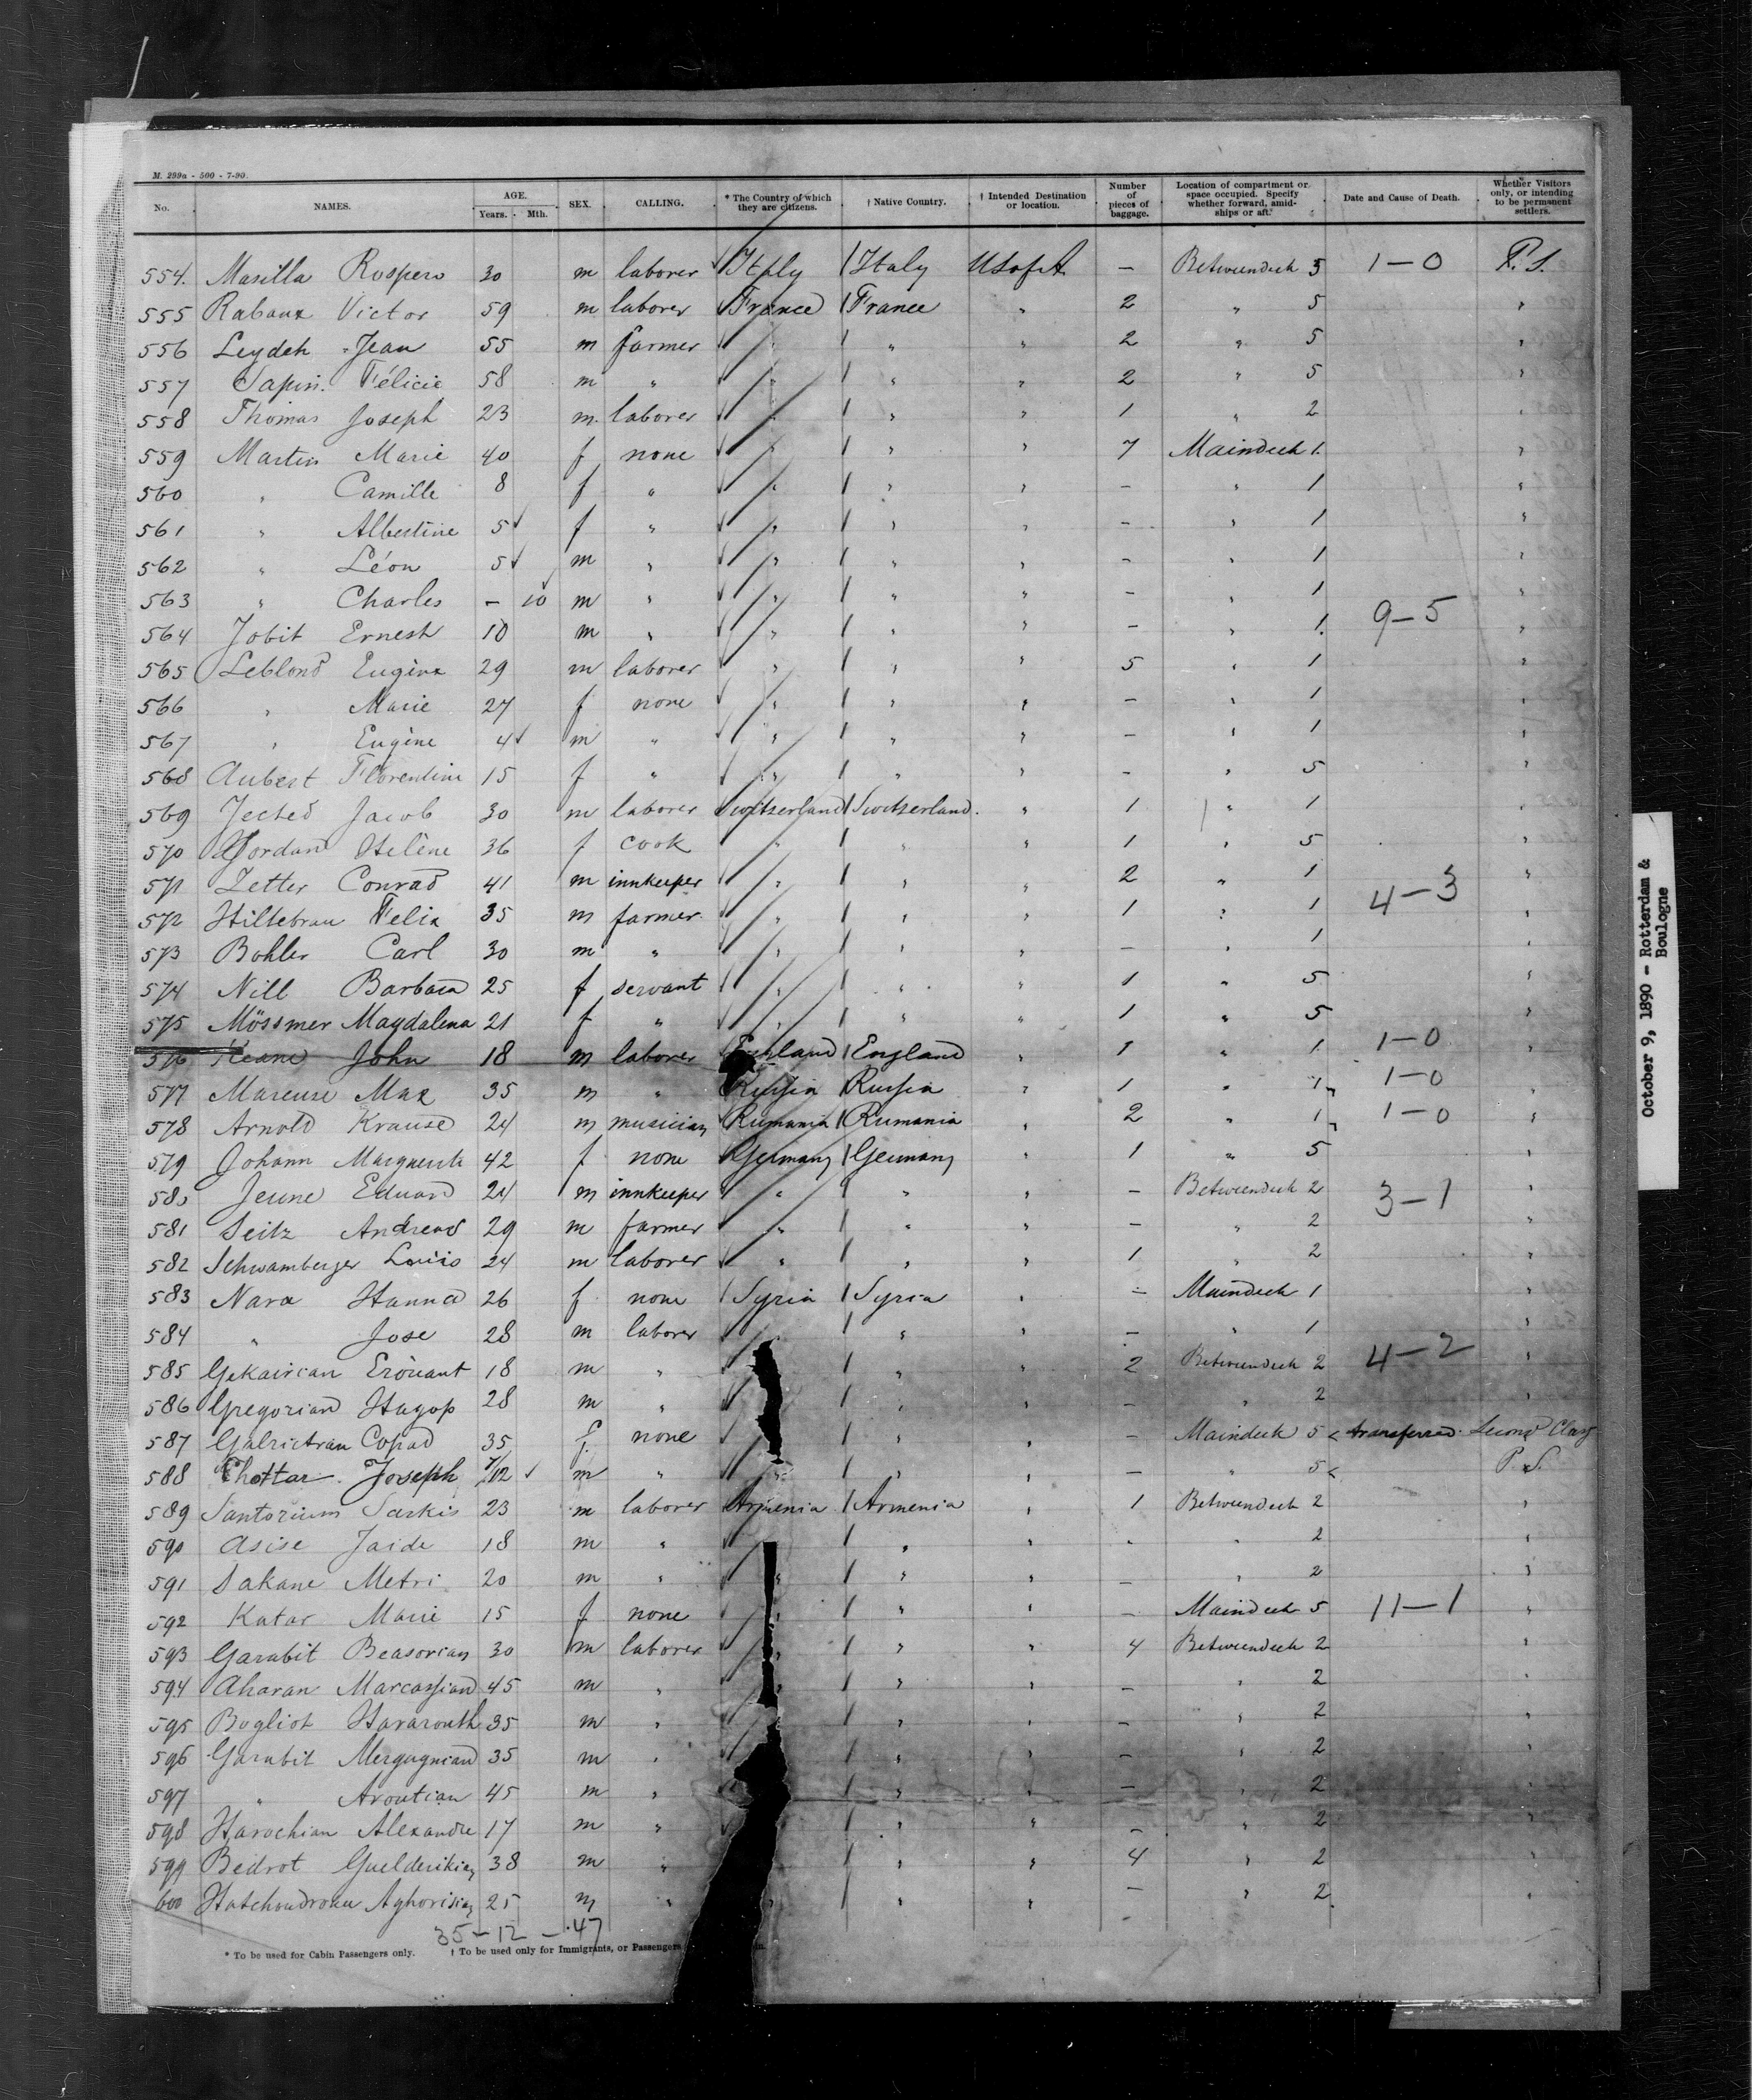 M. 299a - 500 - 7-90.
No. NAMES. AGE. Years. Mth. SEX. CALLING. * The Country of which they are citizens. † Native Country. † Intended Destination or location. Number of pieces of baggage. Location of compartment or space occupied. Specify whether forward, amidships or aft. Date and Cause of Death. Whether Visitors only, or intending to be permanent settlers.
554. Masilla Rospero 30 m laborer Italy Italy U S of A. — Betweendeck 5 1—0 P.S.
555 Rabaux Victor 59 m laborer France France " 2 " 5 "
556 Leydeh Jean 55 m farmer " " " 2 " 5 "
557 Sapin Félicie 58 m " " " " 2 " 5 "
558 Thomas Joseph 23 m laborer " " " 1 " 2 "
559 Martin Marie 40 f none " " " 7 Maindeck 1 "
560 " Camille 8 f " " " " — " 1 "
561 " Albertine 5 f " " " " — " 1 "
562 " Léon 5 m " " " " — " 1 "
563 " Charles — 10 m " " " " — " 1 "
564 Jobit Ernest 10 m " " " " — " 1 9—5 "
565 Leblond Eugène 29 m laborer " " " 5 " 1 "
566 " Marie 27 f none " " " — " 1 "
567 " Eugène 4 m " " " " — " 1 "
568 Aubert Florentine 15 f " " " " — " 5 "
569 Jected Jacob 30 m laborer Switzerland Switzerland " 1 " 1 "
570 Jordan Hélène 36 f cook " " " 1 " 5 "
571 Zetter Conrad 41 m innkeeper " " " 2 " 1 "
572 Hiltebrau Felix 35 m farmer " " " 1 " 1 4—3 "
573 Bohler Carl 30 m " " " " — " 1 "
574 Nill Barbara 25 f servant " " " 1 " 5 "
575 Mössmer Magdalena 21 f " " " " 1 " 5 "
576 Keane John 18 m laborer England England " 1 " 1 1—0
577 Mareuse Max 35 m " Russia Russia " 1 " 1 1—0 "
578 Arnold Krause 24 m musician Rumania Rumania " 2 " 1 1—0 "
579 Johann Marguerite 42 f none Germany Germany " 1 " 5 "
580 Jeune Eduard 24 m innkeeper " " " — Betweendeck 2 3—1 "
581 Seitz Andreas 29 m farmer " " " — " 2 "
582 Schwamberger Louis 24 m laborer " " " 1 " 2 "
583 Nara Hanna 26 f none Syria Syria " — Maindeck 1 "
584 " Jose 28 m laborer " " " — " 1 "
585 Gekairian Erouant 18 m " " " " 2 Betweendeck 2 4—2 "
586 Gregorian Hagop 28 m " " " " — " 2 "
587 Gabrietran Copad 35 f none " " " — Maindeck 5 transferred Second Class
588 Thottar Joseph 7/12 m " " " " — " 5 P.S.
589 Santorium Sarkis 23 m laborer Armenia Armenia " 1 Betweendeck 2 "
590 Asise Jaide 18 m " " " " " " 2 "
591 Sakane Metri 20 m " " " " — " 2 "
592 Katar Marie 15 f none " " " — Maindeck 5 11—1 "
593 Garabit Beasorian 30 m laborer " " " 4 Betweendeck 2 "
594 Aharan Marcassian 45 m " " " " — " 2 "
595 Bogliot Havarouth 35 m " " " " — " 2 "
596 Garabit Mergugnian 35 m " " " " — " 2 "
597 " Aroutian 45 m " " " — " 2 "
598 Harochian Alexandre 17 m " " " — " 2 "
599 Bedrot Guelderikian 38 m " " " 4 " 2 "
600 Hatchoudroau Aghorisian 25 m " " " " — " 2 "
35—12—47
* To be used for Cabin Passengers only. † To be used only for Immigrants, or Passengers
October 9, 1890 - Rotterdam &
Boulogne